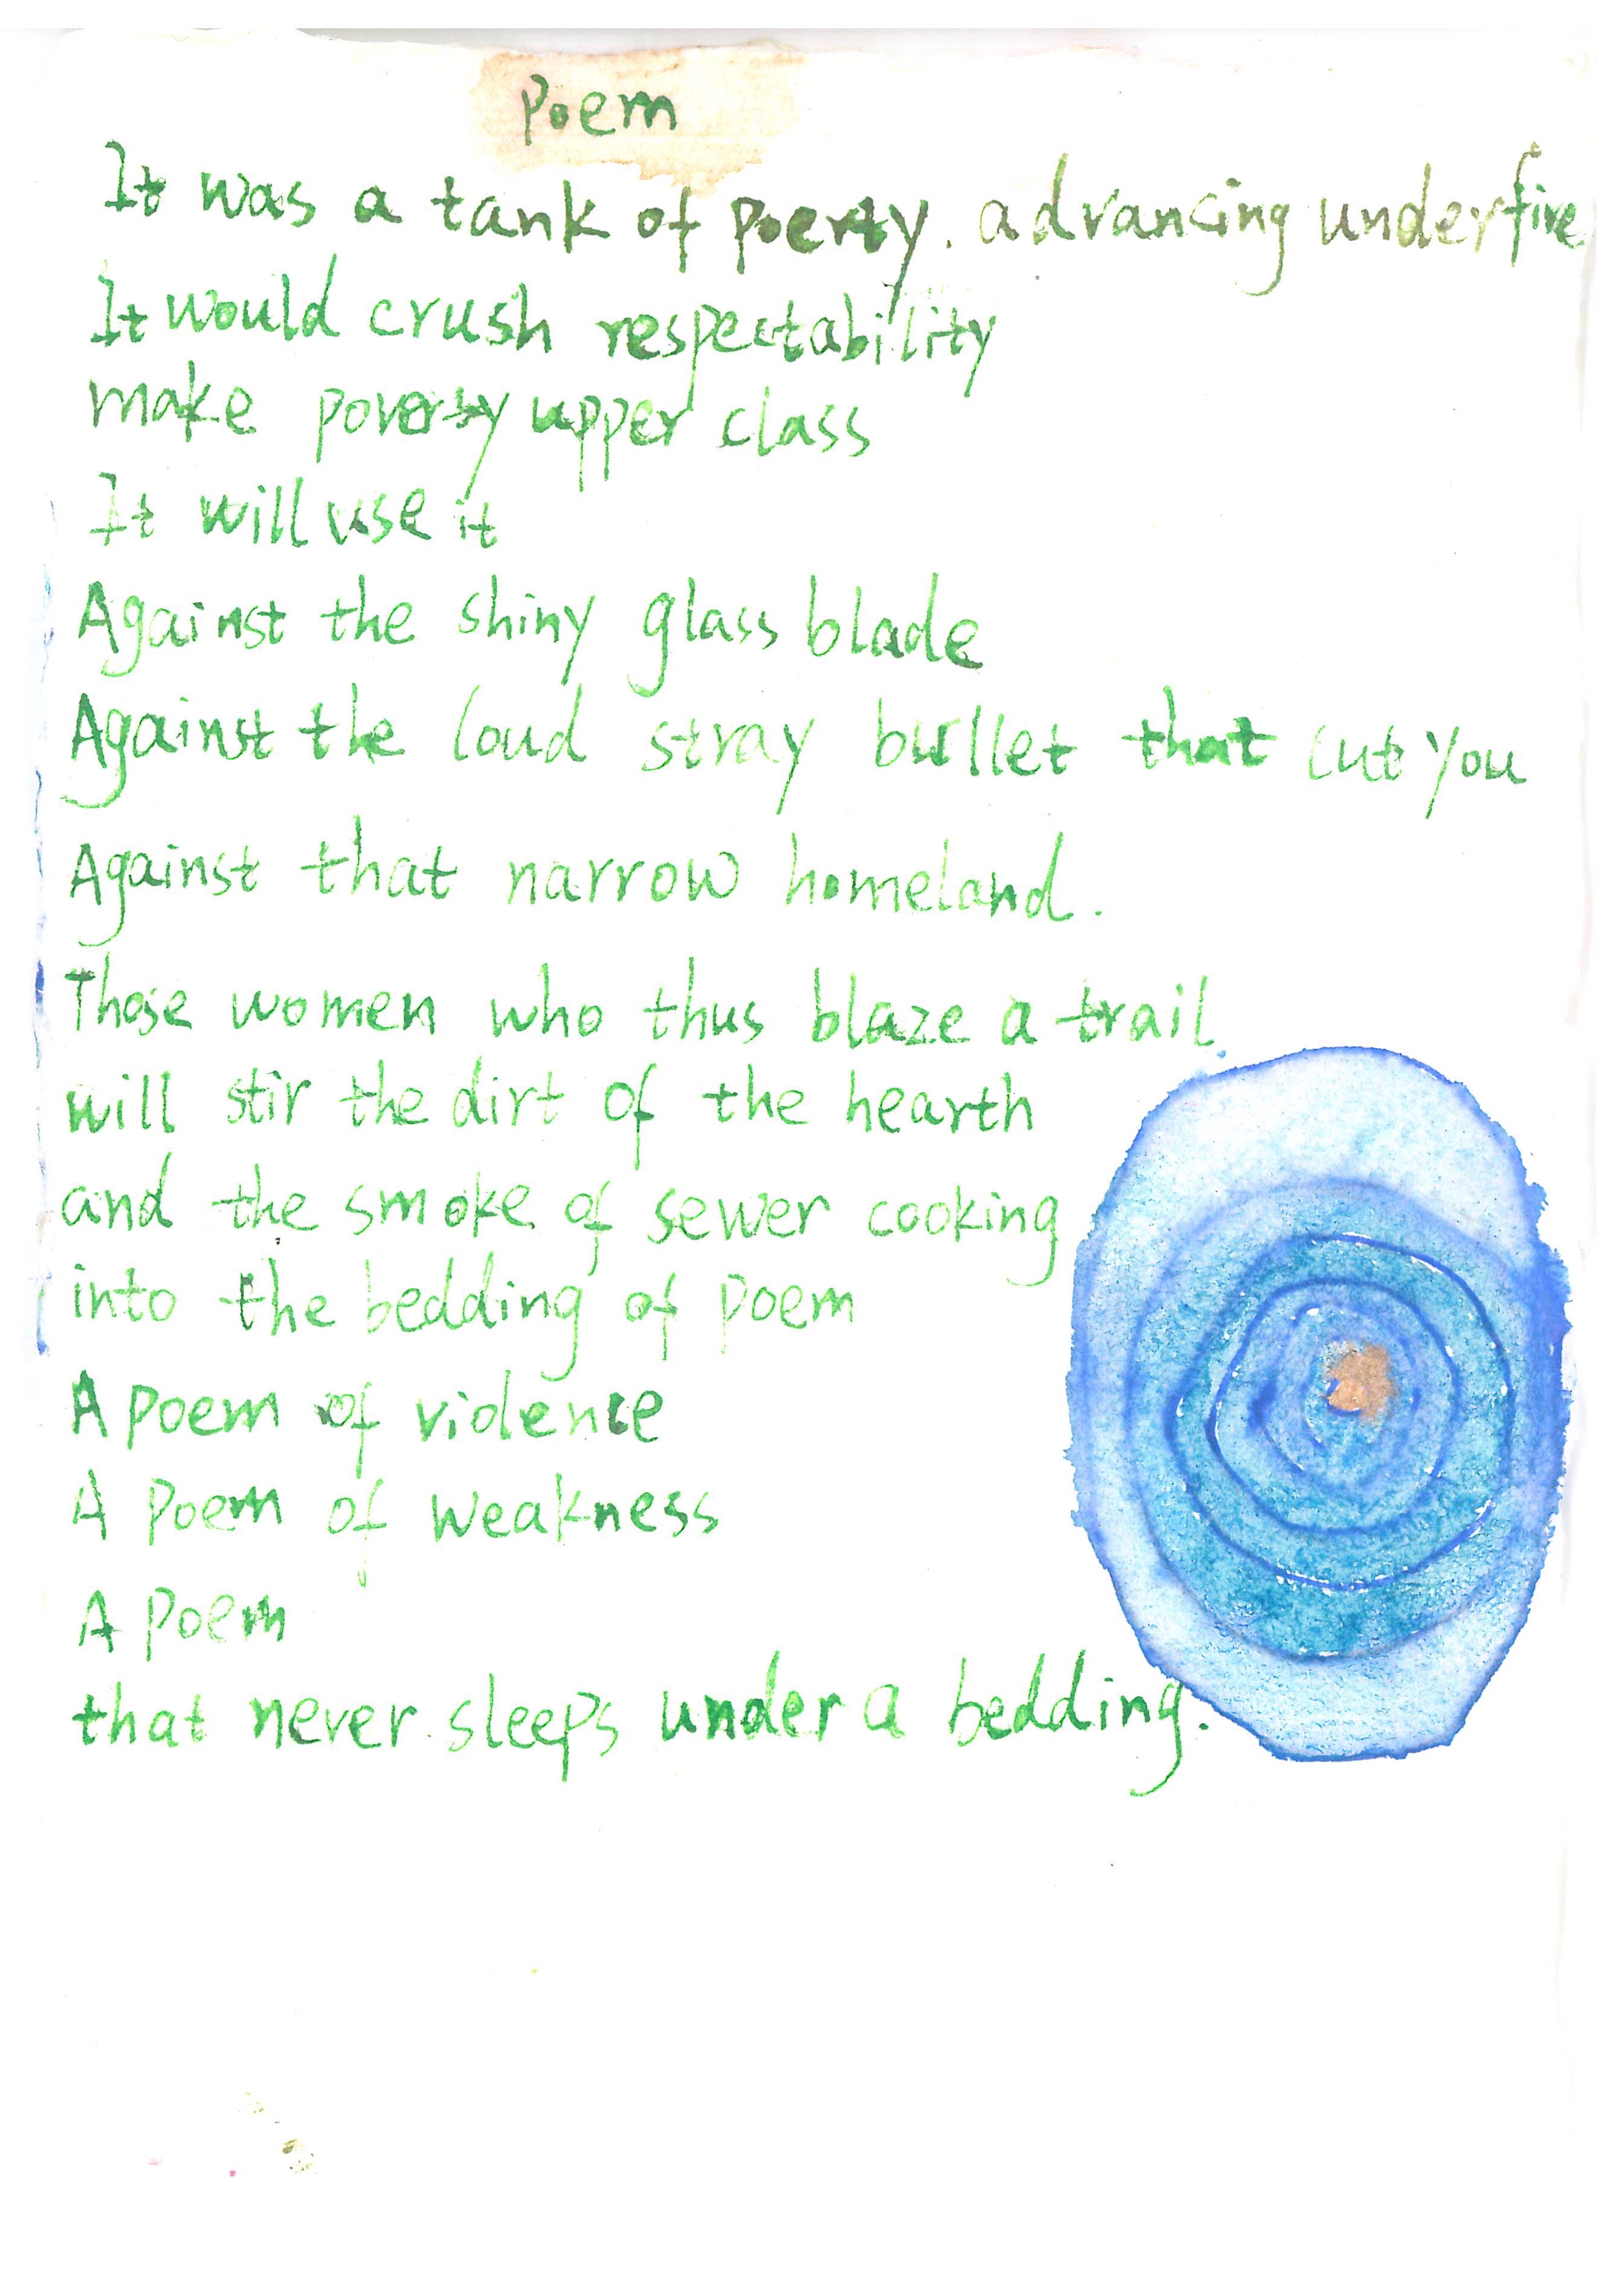 Poem
It was a tank of poerty. advancing under fire
It would crush respectability
make poverty upper class
It will use it
Against the shiny glass blade
Against the loud stray bullet that cut you
Against that narrow homeland.
Those women who thus blaze a trail
will stir the dirt of the hearth
and the smoke of sewer cooking
into the bedding of poem
A poem of violence
A poem of weakness
A poem
that never sleeps under a bedding.